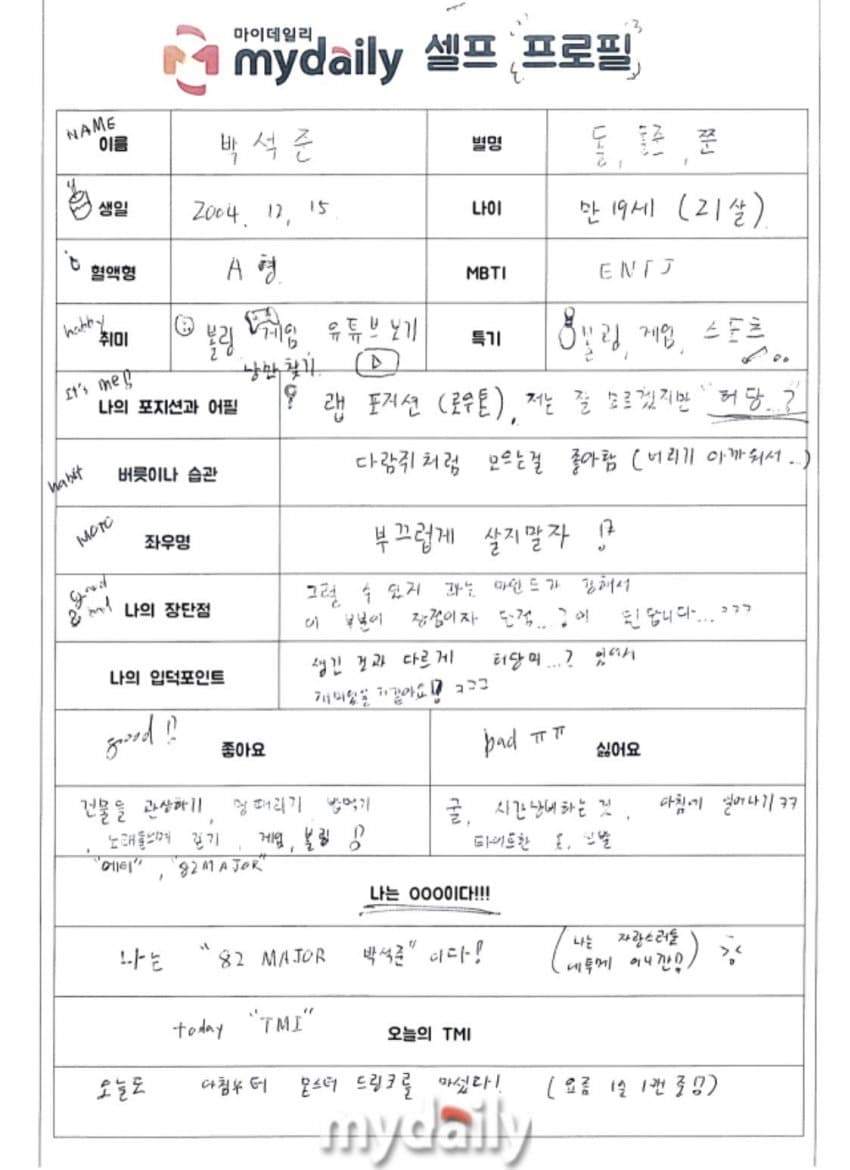 마이데일리
mydaily 셀프 프로필
NAME
이름 박석준 별명 돌, 돌준, 쭌
생일 2004. 12, 15. 나이 만 19세 (21살)
혈액형 A 형 MBTI
habby 취미 볼링 게임 유튜브 보기
낭만찾기 특기 볼링, 게임, 스포츠
It's me!!
나의 포지션과 어필 랩 포지션 (로우톤), 저는 잘 모르겠지만 "허당...?"
habit 버릇이나 습관 다람쥐처럼 모으는걸 좋아함 (버리기 아까워서..)
MOTO
좌우명 부끄럽게 살지말자 !?
good
& bad 나의 장단점 그럴 수 있지 라는 마인드가 강해서
이 부분이 장점이자 단점...?이 된답니다...ㅋㅋㅋ
나의 입덕포인트 생긴 것과 다르게 허당미...? 있어서
재미있을거같아요!! ㅋㅋㅋ
good !! 좋아요 bad ㅠㅠ 싫어요
건물을 관상하기, 멍때리기, 밥먹기
, 노래들으며 걷기, 게임, 볼링 !?
"에티", "82MAJOR"
굴, 시간낭비하는 것, 아침에 일어나기ㅋㅋ
타이트한 옷, 신발
나는 OOO이다!!!
나는 "82 MAJOR 박석준" 이다! (나는 자랑스러운
네투메 이니깐!!)
today "TMI" 오늘의 TMI
오늘도 아침부터 몬스터 드링크를 마셨다! (요즘 1일 1캔 중!!)
mydaily